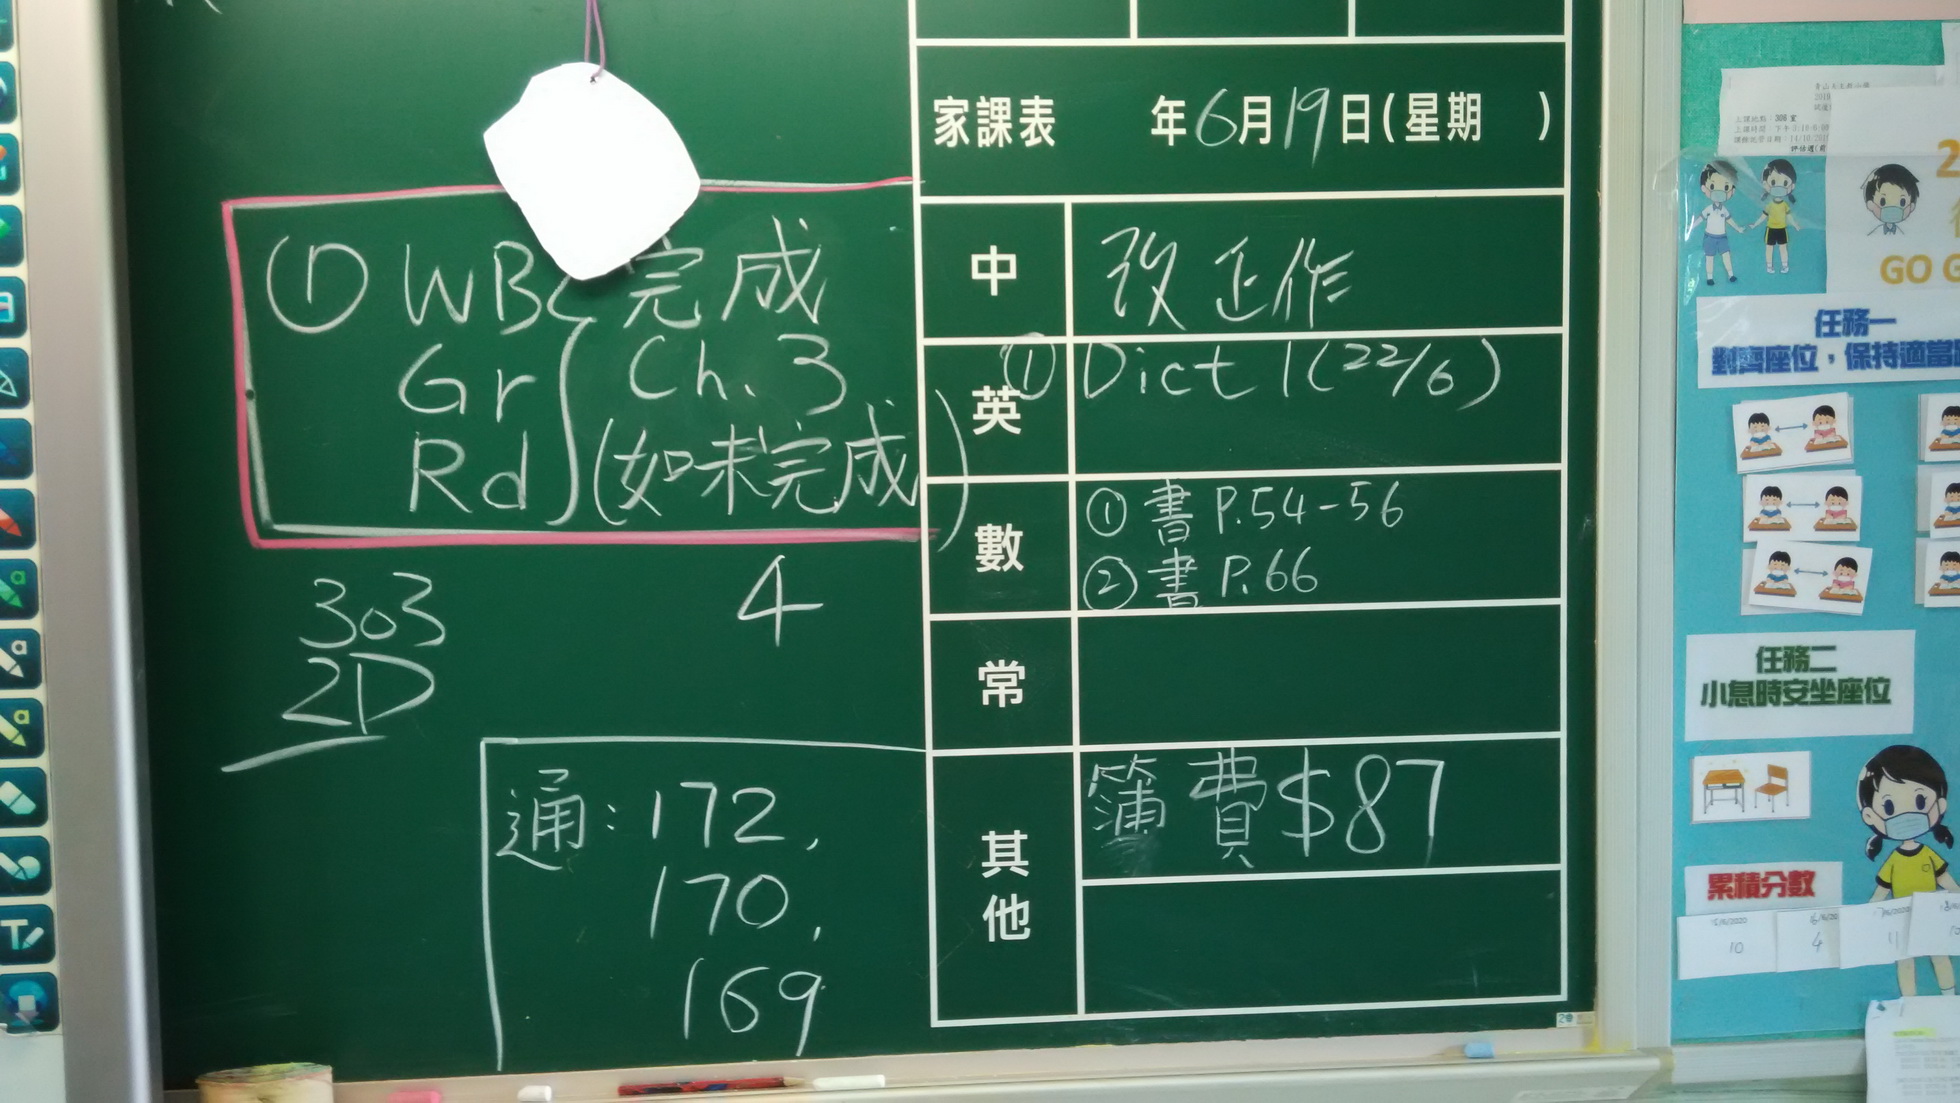 家課表 年6月19日(星期 )
中 改正作
英 ① Dict 1 (22/6)
數 ① 書 P.54-56
② 書 P.66
常
其他 簿費 $87
① WB 完成
Gr Ch. 3
Rd (如未完成)
303 4
2D
通: 172,
170,
169
任務一
對齊座位,保持適當
任務二
小息時安坐座位
累積分數
10
4
11
GO G
308室